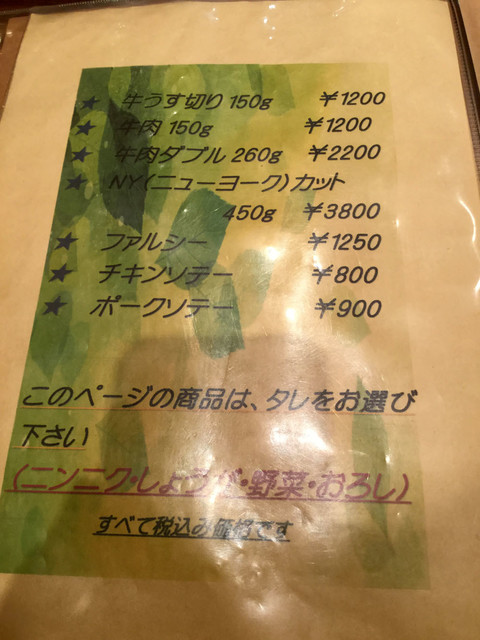 ★ 牛うす切り 150g ￥1200
★ 牛肉 150g ￥1200
★ 牛肉ダブル 260g ￥2200
★ NY(ニューヨーク)カット
450g ￥3800
★ ファルシー ￥1250
★ チキンソテー ￥800
★ ポークソテー ￥900
このページの商品は、タレをお選び
下さい
(ニンニク・しょうが・野菜・おろし)
すべて税込み価格です